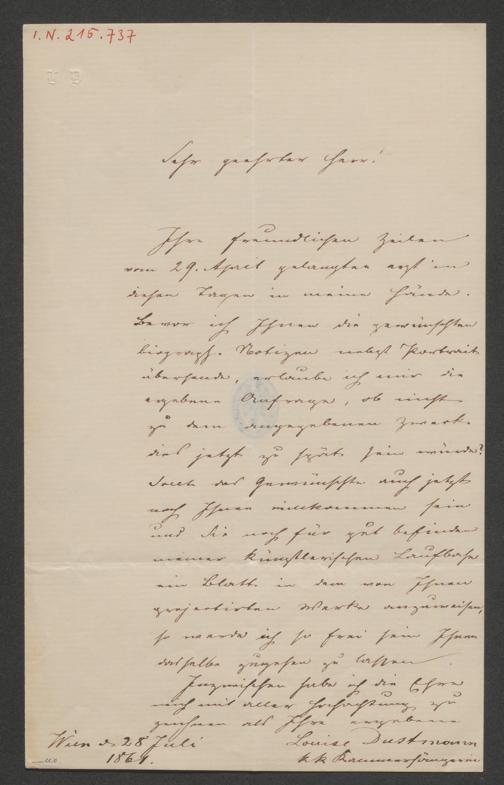 I. N. 215.737
Sehr geehrter Herr!
Ihre freundlichen Zeilen
vom 29. April gelangten erst in
diesen Tagen in meine Hände.
Bevor ich Ihnen die gewünschten
biograph. Notizen nebst Portrait
übersende, erlaube ich mir die
ergebene Anfrage, ob nicht
zu dem angegebenen Zwecke
dies jetzt zu spät sein würde?
Sollte das Gewünschte auch jetzt
noch Ihnen willkommen sein
und Sie noch für gut befinden
meiner künstlerischen Laufbahn
ein Blatt in dem von Ihnen
projectirten Werke anzuweisen,
so werde ich so frei sein Ihnen
dasselbe zugehen zu lassen.
Inzwischen habe ich die Ehre
mich mit aller Hochachtung zu
zeichnen als Ihre ergebene
Louise Dustmann
k k Kammersängerin
Wien d. 28 Juli